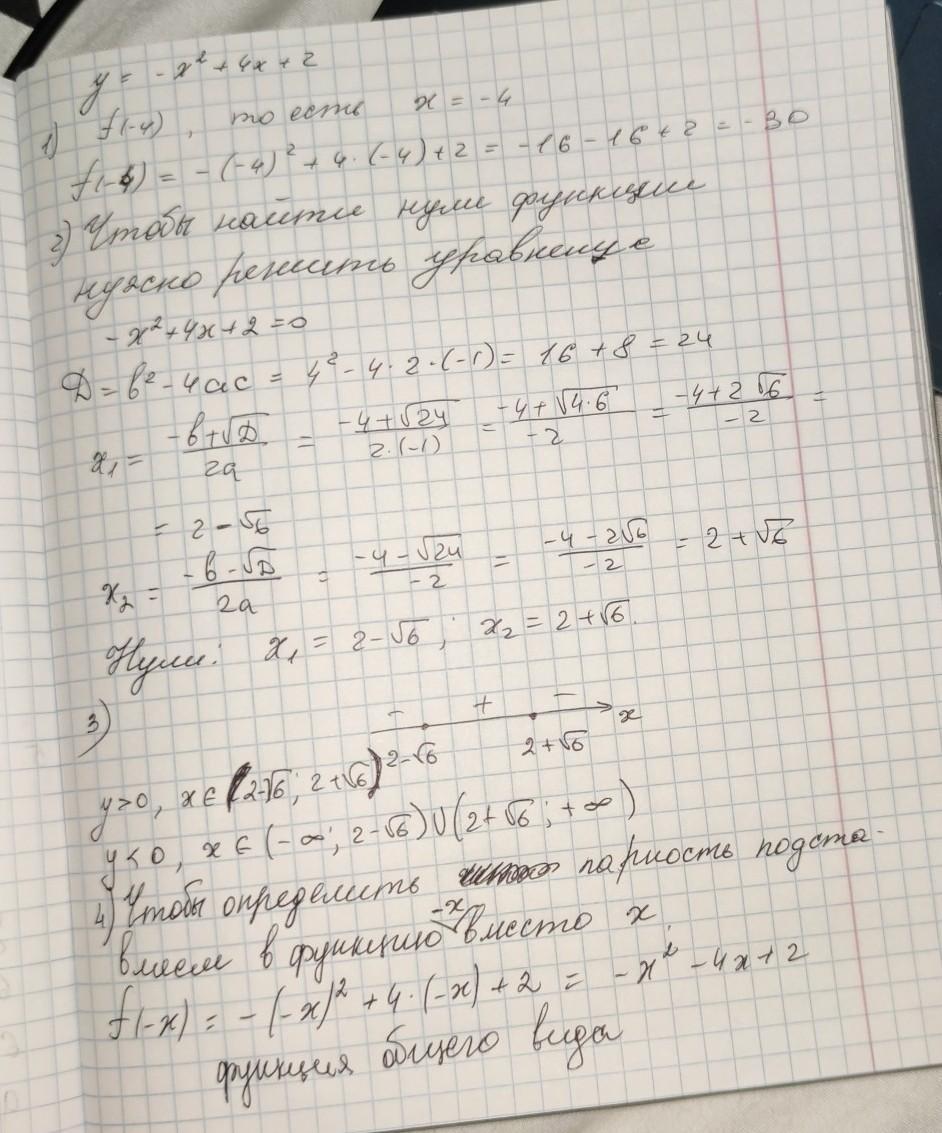 y = -x² + 4x + 2
1) f(-4), то есть x = -4
f(-4) = -(-4)² + 4·(-4) + 2 = -16 - 16 + 2 = -30
2) Чтобы найти нули функции
нужно решить уравнение
-x² + 4x + 2 = 0
Д = b² - 4ac = 4² - 4·2·(-1) = 16 + 8 = 24
x₁ = (-b+√D)/(2a) = (-4+√24)/(2·(-1)) = (-4+√(4·6))/(-2) = (-4+2√6)/(-2) =
= 2 - √6
x₂ = (-b-√D)/(2a) = (-4-√24)/(-2) = (-4-2√6)/(-2) = 2 + √6
Нули: x₁ = 2-√6; x₂ = 2+√6.
3) - + - x
2-√6 2+√6
y > 0, x ∈ (2-√6; 2+√6)
y < 0, x ∈ (-∞; 2-√6) ∪ (2+√6; +∞)
4) Чтобы определить парность подста-
вляем в функцию -x вместо x
f(-x) = -(-x)² + 4·(-x) + 2 = -x² - 4x + 2
функция общего вида